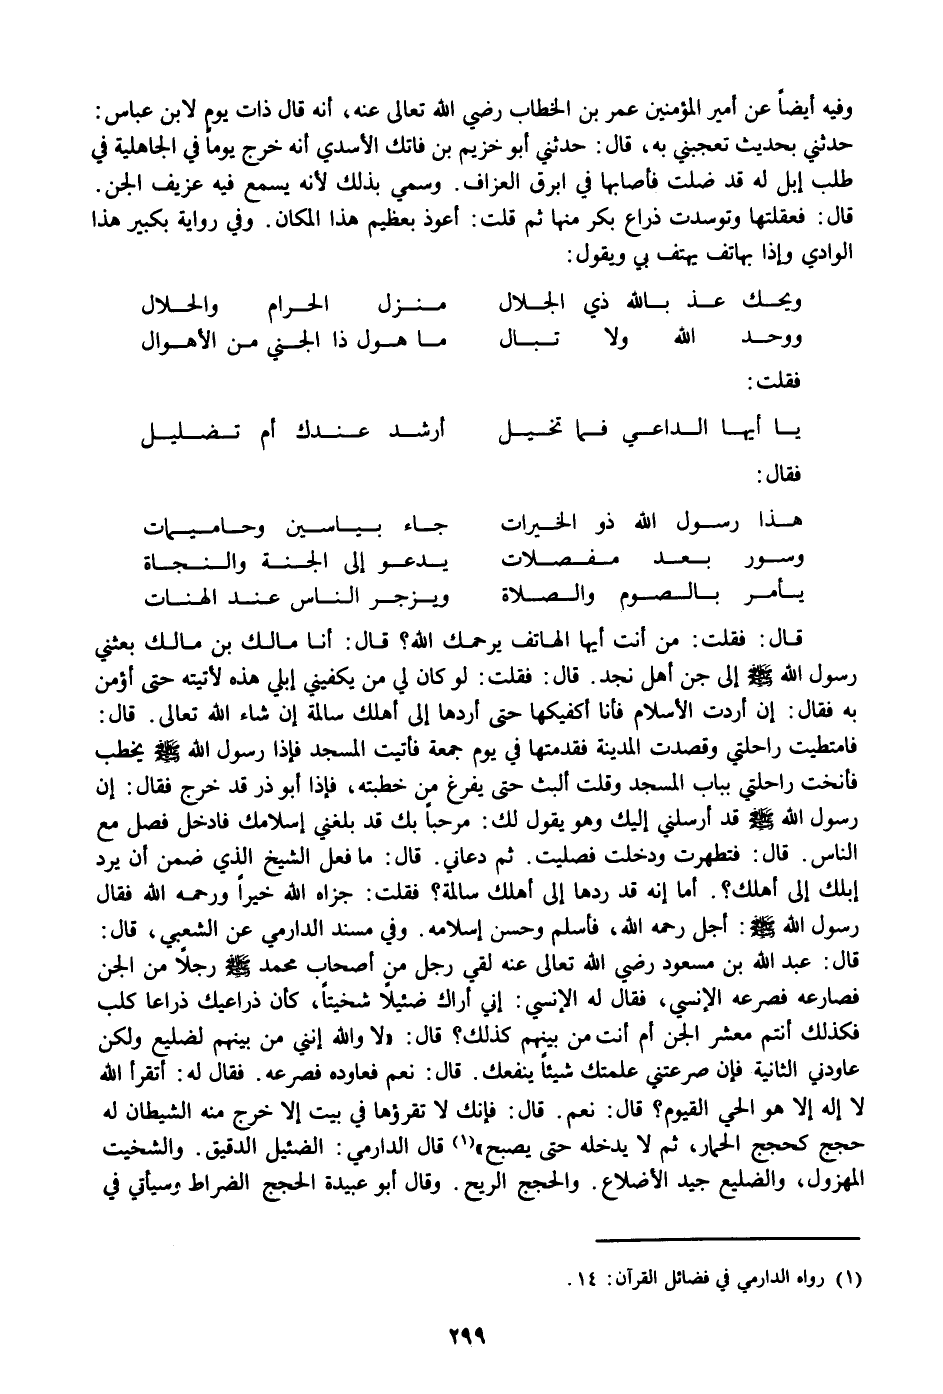 وفيه أيضاً عن أمير المؤمنين عمر بن الخطاب رضي الله تعالى عنه، أنه قال ذات يوم لابن عباس:
حدثني بحديث تعجبني به، قال: حدثني أبو خزيم بن فاتك الأسدي أنه خرج يوماً في الجاهلية في
طلب إبل له قد ضلت فأصابها في ابرق العزاف. وسمي بذلك لأنه يسمع فيه عزيف الجن.
قال: فعقلتها وتوسدت ذراع بكر منها ثم قلت: أعوذ بعظيم هذا المكان. وفي رواية بكبير هذا
الوادي وإذا بهاتف يهتف بي ويقول:
ويحك عذ بالله ذي الجلال منزل الحرام والحلال
ووحد الله ولا تبال ما هول ذا الجني من الأهوال
فقلت:
يا أيها الداعي فما تخيل أرشد عندك أم تضليل
فقال:
هذا رسول الله ذو الخيرات جاء بياسين وحاميمات
وسور بعد مفصلات يدعو إلى الجنة والنجاة
يأمر بالصوم والصلاة ويزجر الناس عند الهنات
قال: فقلت: من أنت أيها الهاتف يرحمك الله؟ قال: أنا مالك بن مالك بعثني
رسول الله ﷺ إلى جن أهل نجد. قال: فقلت: لو كان لي من يكفيني إبلي هذه لأتيته حتى أؤمن
به فقال: إن أردت الأسلام فأنا أكفيكها حتى أردها إلى أهلك سالمة إن شاء الله تعالى. قال:
فامتطيت راحلتي وقصدت المدينة فقدمتها في يوم جمعة فأتيت المسجد فإذا رسول الله ﷺ يخطب
فأنخت راحلتي بباب المسجد وقلت ألبث حتى يفرغ من خطبته، فإذا أبو ذر قد خرج فقال: إن
رسول الله ﷺ قد أرسلني إليك وهو يقول لك: مرحباً بك قد بلغني إسلامك فادخل فصل مع
الناس. قال: فتطهرت ودخلت فصليت. ثم دعاني. قال: ما فعل الشيخ الذي ضمن أن يرد
إبلك إلى أهلك؟. أما إنه قد ردها إلى أهلك سالمة؟ فقلت: جزاه الله خيراً ورحمه الله فقال
رسول الله ﷺ: أجل رحمه الله، فأسلم وحسن إسلامه. وفي مسند الدارمي عن الشعبي، قال:
قال: عبد الله بن مسعود رضي الله تعالى عنه لقي رجل من أصحاب محمد ﷺ رجلاً من الجن
فصارعه فصرعه الإنسي، فقال له الإنسي: إني أراك ضئيلاً شخيتاً، كأن ذراعيك ذراعا كلب
فكذلك أنتم معشر الجن أم أنت من بينهم كذلك؟ قال: «لا والله إنني من بينهم لضليع ولكن
عاودني الثانية فإن صرعتني علمتك شيئاً ينفعك. قال: نعم فعاوده فصرعه. فقال له: أتقرأ الله
لا إله إلا هو الحي القيوم؟ قال: نعم. قال: فإنك لا تقرؤها في بيت إلا خرج منه الشيطان له
حجج كحجج الحمار، ثم لا يدخله حتى يصبح»(١) قال الدارمي: الضئيل الدقيق. والشخيت
المهزول، والضليع جيد الأضلاع. والحجج الريح. وقال أبو عبيدة الحجج الضراط وسيأتي في
(١) رواه الدارمي في فضائل القرآن: ١٤.
٢٩٩